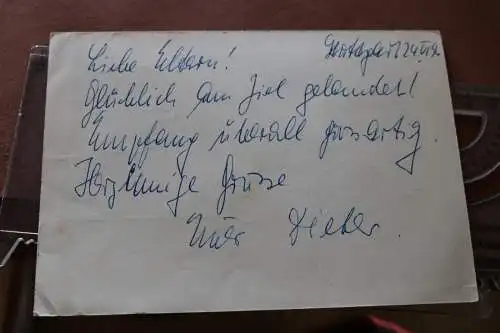 Liebe Eltern!
Glücklich am Ziel gelandet!
Empfang überall grossartig.
Herzinnige Grüsse
Euer Dieter.